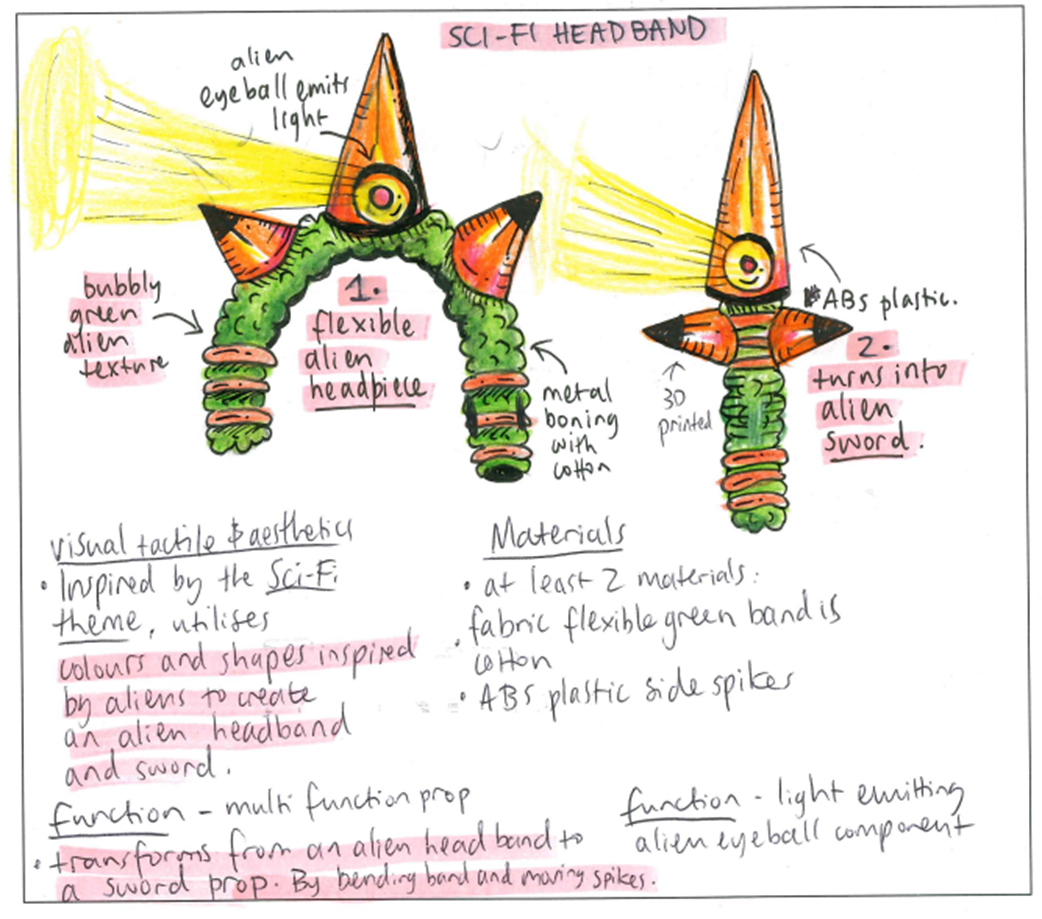 SCI-FI HEADBAND
alien
eyeball emits
light
bubbly
green
alien
texture
1.
flexible
alien
headpiece
metal
boning
with
cotton
ABs plastic.
3D
printed
2.
turns into
alien
sword.
visual tactile & aesthetics
• Inspired by the Sci-Fi
theme, utilises
colours and shapes inspired
by aliens to create
an alien headband
and sword.
Materials
• at least 2 materials:
• fabric flexible green band is
cotton
• ABS plastic side spikes
function - multi function prop
• transforms from an alien head band to
a sword prop. By bending band and moving spikes.
function - light emitting
alien eyeball component